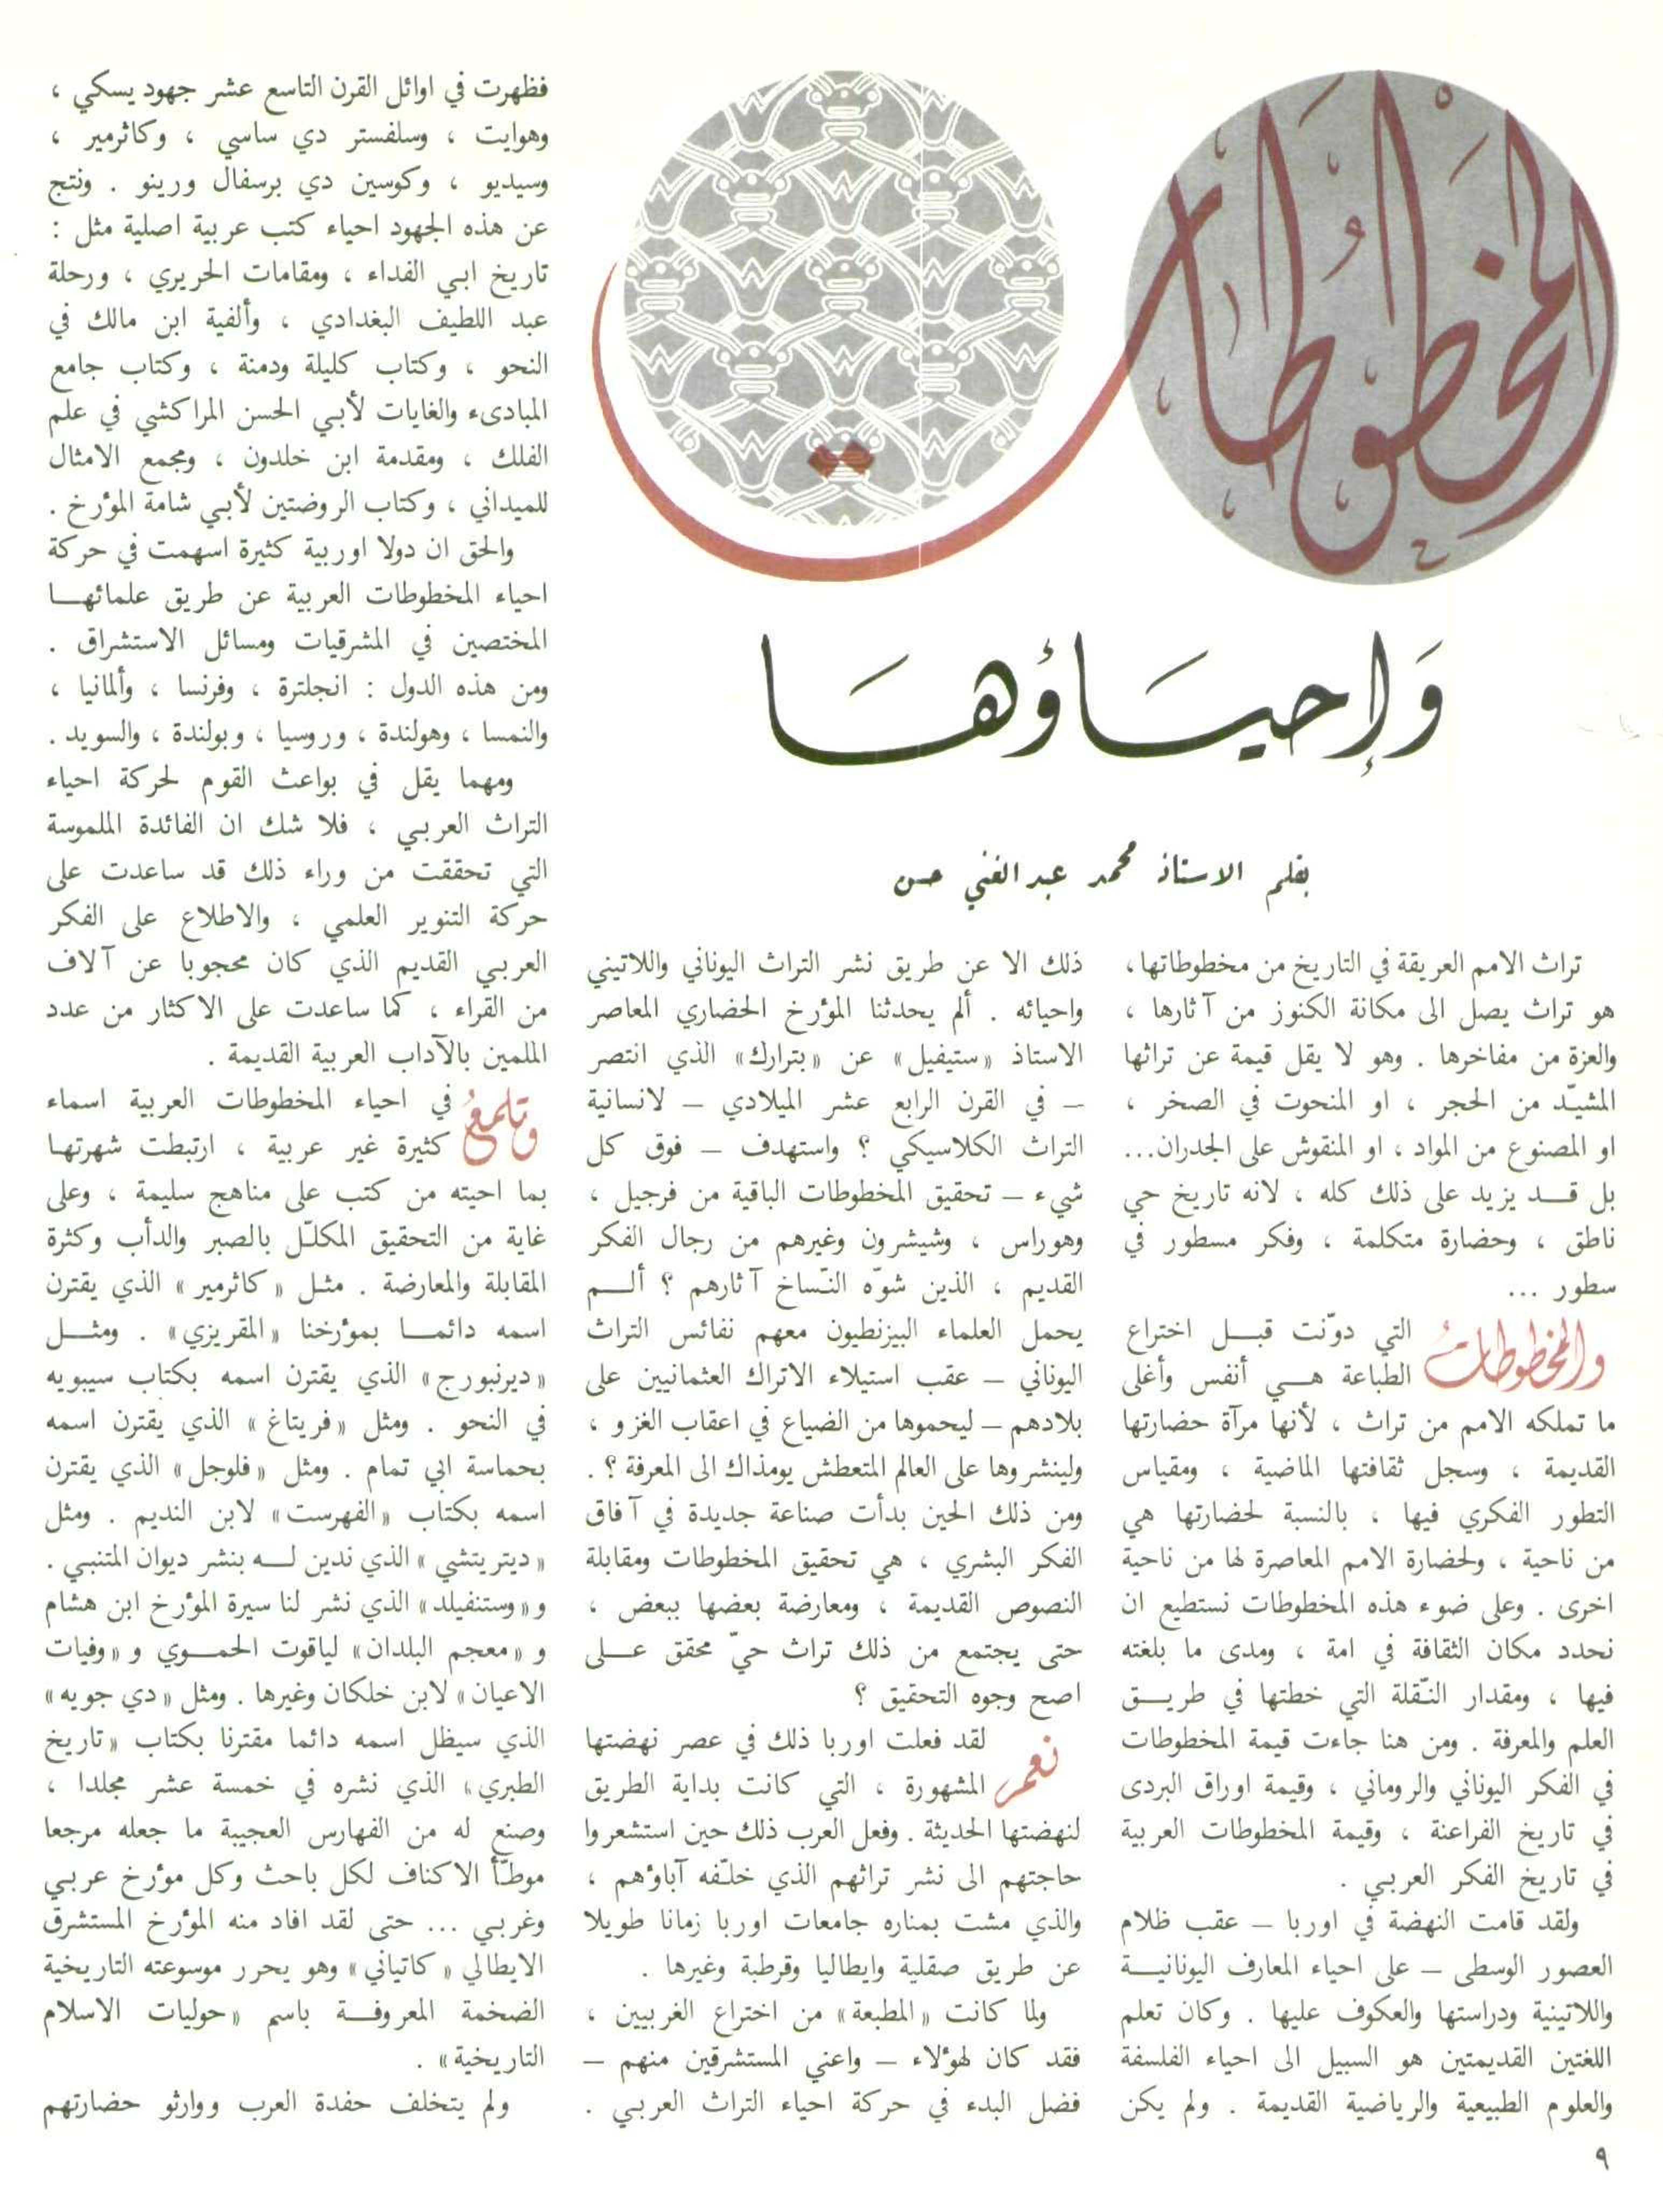 المخطوطات
وَإحيَاؤهَا
بقلم الاستاذ محمد عبد الغني حسن
تراث الامم العريقة في التاريخ من مخطوطاتها ،
هو تراث يصل الى مكانة الكنوز من آثارها ،
والعزة من مفاخرها . وهو لا يقل قيمة عن تراثها
المشيّد من الحجر ، او المنحوت في الصخر ،
او المصنوع من المواد ، او المنقوش على الجدران...
بل قد يزيد على ذلك كله ، لانه تاريخ حي
ناطق ، وحضارة متكلمة ، وفكر مسطور في
سطور ...
والمخطوطات التي دوّنت قبل اختراع
الطباعة هي أنفس وأغلى
ما تملكه الامم من تراث ، لأنها مرآة حضارتها
القديمة ، وسجل ثقافتها الماضية ، ومقياس
التطور الفكري فيها ، بالنسبة لحضارتها هي
من ناحية ، ولحضارة الامم المعاصرة لها من ناحية
اخرى . وعلى ضوء هذه المخطوطات نستطيع ان
نحدد مكان الثقافة في امة ، ومدى ما بلغته
فيها ، ومقدار النّقلة التي خطتها في طريق
العلم والمعرفة . ومن هنا جاءت قيمة المخطوطات
في الفكر اليوناني والروماني ، وقيمة اوراق البردى
في تاريخ الفراعنة ، وقيمة المخطوطات العربية
في تاريخ الفكر العربي .
ولقد قامت النهضة في اوربا – عقب ظلام
العصور الوسطى – على احياء المعارف اليونانية
واللاتينية ودراستها والعكوف عليها . وكان تعلم
اللغتين القديمتين هو السبيل الى احياء الفلسفة
والعلوم الطبيعية والرياضية القديمة . ولم يكن
ذلك الا عن طريق نشر التراث اليوناني واللاتيني
واحيائه . ألم يحدثنا المؤرخ الحضاري المعاصر
الاستاذ «ستيفيل» عن «بترارك» الذي انتصر
– في القرن الرابع عشر الميلادي – لانسانية
التراث الكلاسيكي ؟ واستهدف – فوق كل
شيء – تحقيق المخطوطات الباقية من فرجيل ،
وهوراس ، وشيشرون وغيرهم من رجال الفكر
القديم ، الذين شوّه النّساخ آثارهم ؟ ألم
يحمل العلماء البيزنطيون معهم نفائس التراث
اليوناني – عقب استيلاء الاتراك العثمانيين على
بلادهم – ليحموها من الضياع في اعقاب الغزو ،
ولينشروها على العالم المتعطش يومذاك الى المعرفة ؟ .
ومن ذلك الحين بدأت صناعة جديدة في آفاق
الفكر البشري ، هي تحقيق المخطوطات ومقابلة
النصوص القديمة ، ومعارضة بعضها ببعض ،
حتى يجتمع من ذلك تراث حيّ محقق على
اصح وجوه التحقيق ؟
نعم لقد فعلت اوربا ذلك في عصر نهضتها
المشهورة ، التي كانت بداية الطريق
لنهضتها الحديثة . وفعل العرب ذلك حين استشعروا
حاجتهم الى نشر تراثهم الذي خلّفه آباؤهم ،
والذي مشت بمناره جامعات اوربا زمانا طويلا
عن طريق صقلية وايطاليا وقرطبة وغيرها .
ولما كانت «المطبعة» من اختراع الغربيين ،
فقد كان لهؤلاء – واعني المستشرقين منهم –
فضل البدء في حركة احياء التراث العربي .
فظهرت في اوائل القرن التاسع عشر جهود يسكي ،
وهوايت ، وسلفستر دي ساسي ، وكاثرمير ،
وسيديو ، وكوسين دي برسفال ورينو . ونتج
عن هذه الجهود احياء كتب عربية اصلية مثل :
تاريخ ابي الفداء ، ومقامات الحريري ، ورحلة
عبد اللطيف البغدادي ، وألفية ابن مالك في
النحو ، وكتاب كليلة ودمنة ، وكتاب جامع
المبادىء والغايات لأبي الحسن المراكشي في علم
الفلك ، ومقدمة ابن خلدون ، ومجمع الامثال
للميداني ، وكتاب الروضتين لأبي شامة المؤرخ .
والحق ان دولا اوربية كثيرة اسهمت في حركة
احياء المخطوطات العربية عن طريق علمائها
المختصين في المشرقيات ومسائل الاستشراق .
ومن هذه الدول : انجلترة ، وفرنسا ، وألمانيا ،
والنمسا ، وهولندة ، وروسيا ، وبولندة ، والسويد .
ومهما يقل في بواعث القوم لحركة احياء
التراث العربي ، فلا شك ان الفائدة الملموسة
التي تحققت من وراء ذلك قد ساعدت على
حركة التنوير العلمي ، والاطلاع على الفكر
العربي القديم الذي كان محجوبا عن آلاف
من القراء ، كما ساعدت على الاكثار من عدد
الملمين بالآداب العربية القديمة .
وتلمعُ في احياء المخطوطات العربية اسماء
كثيرة غير عربية ، ارتبطت شهرتها
بما احيته من كتب على مناهج سليمة ، وعلى
غاية من التحقيق المكلّل بالصبر والدأب وكثرة
المقابلة والمعارضة . مثل «كاثرمير» الذي يقترن
اسمه دائما بمؤرخنا «المقريزي» . ومثل
«ديرنبورج» الذي يقترن اسمه بكتاب سيبويه
في النحو . ومثل «فريتاغ» الذي يقترن اسمه
بحماسة ابي تمام . ومثل «فلوجل» الذي يقترن
اسمه بكتاب «الفهرست» لابن النديم . ومثل
«ديتريتشي» الذي ندين له بنشر ديوان المتنبي .
و«وستنفيلد» الذي نشر لنا سيرة المؤرخ ابن هشام
و «معجم البلدان» لياقوت الحموي و «وفيات
الاعيان» لابن خلكان وغيرها . ومثل «دي جويه»
الذي سيظل اسمه دائما مقترنا بكتاب «تاريخ
الطبري» الذي نشره في خمسة عشر مجلدا ،
وصنع له من الفهارس العجيبة ما جعله مرجعا
موطّأ الاكناف لكل باحث وكل مؤرخ عربي
وغربي ... حتى لقد افاد منه المؤرخ المستشرق
الايطالي «كاتياني» وهو يحرر موسوعته التاريخية
الضخمة المعروفة باسم «حوليات الاسلام
التاريخية» .
ولم يتخلف حفدة العرب ووارثو حضارتهم
٩